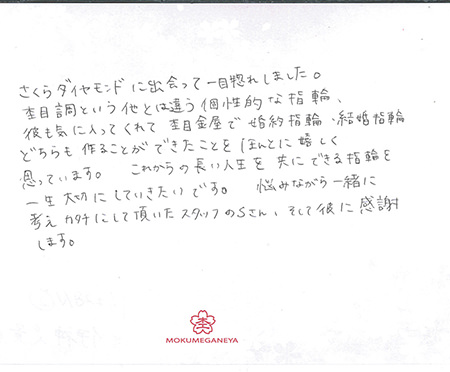 さくらダイヤモンドに出会って一目惚れしました。
杢目調という他とは違う個性的な指輪、
彼も気に入ってくれて杢目金屋で婚約指輪、結婚指輪
どちらも作ることができたことをほんとに嬉しく
思っています。 これからの長い人生を共にできる指輪を
一生大切にしていきたいです。 悩みながら一緒に
考えカタチにして頂いたスタッフのSさん、そして彼に感謝
します。
杢
MOKUMEGANEYA